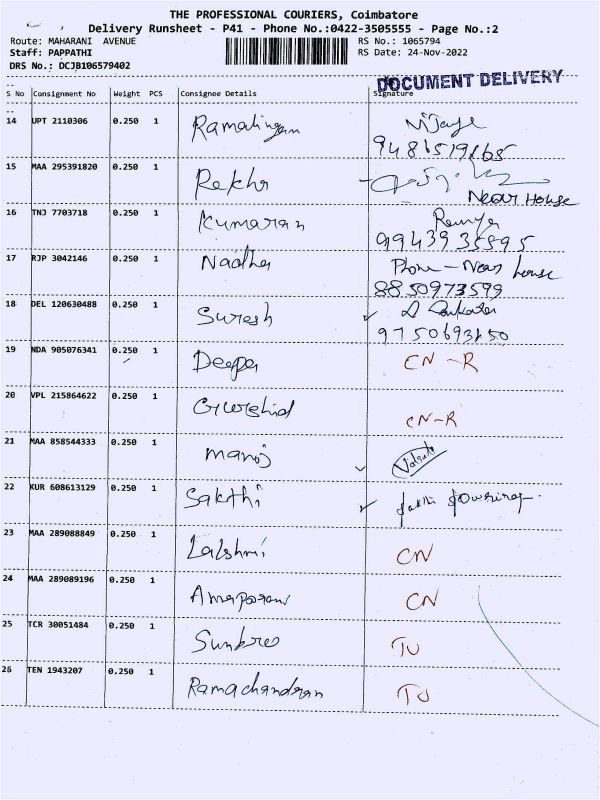 THE PROFESSIONAL COURIERS, Coimbatore
Delivery Runsheet - P41 - Phone No.:0422-3505555 - Page No.:2
Route: MAHARANI AVENUE RS No.: 1065794
Staff: PAPPATHI RS Date: 24-Nov-2022
DRS No.: DCJB106579402
DOCUMENT DELIVERY
S No Consignment No Weight PCS Consignee Details Signature
14 UPT 2110306 0.250 1 Ramalingam
15 MAA 295391820 0.250 1 Rekha
Near House
16 TNJ 7703718 0.250 1 Kumaran Ramya
99439 35595
17 RJP 3042146 0.250 1 Nadha Phone - Near house
8850973599
18 DEL 120630488 0.250 1 Suresh
9750693150
19 NDA 905076341 0.250 1 Deepa CN - R
20 VPL 215864622 0.250 1 CN - R
21 MAA 858544333 0.250 1 manoj
22 KUR 608613129 0.250 1 Sakthi
23 MAA 289088849 0.250 1 Lalshmi CN
24 MAA 289089196 0.250 1 CN
25 TCR 30051484 0.250 1 TU
26 TEN 1943207 0.250 1 Ramachandran TU